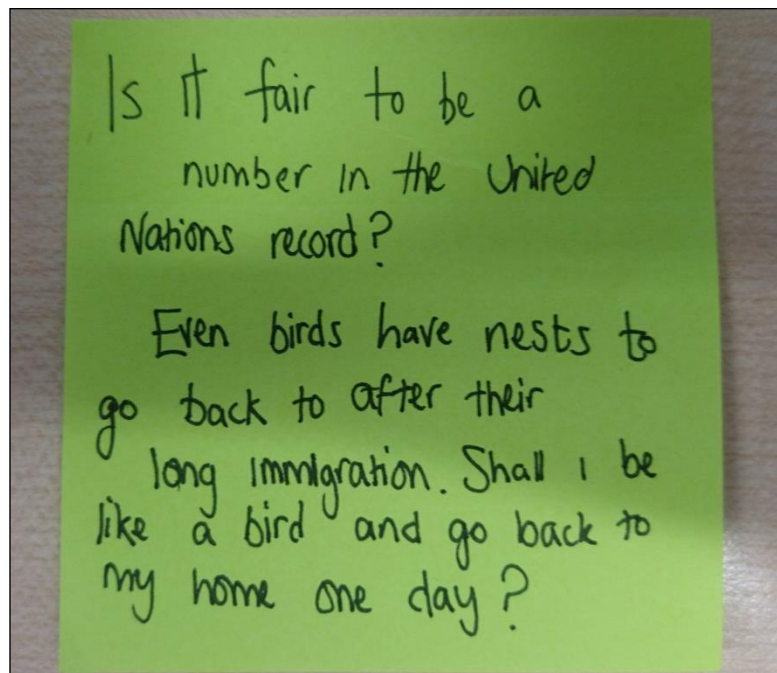 Is it fair to be a
number in the United
Nations record?
Even birds have nests to
go back to after their
long immigration. Shall i be
like a bird and go back to
my home one day?